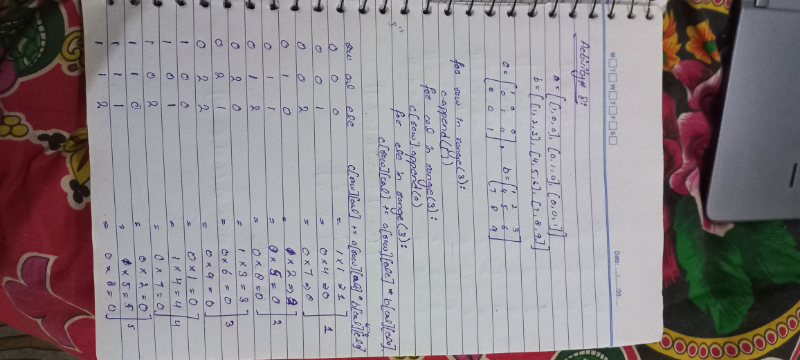 M T W T F S
Date:
Activity# 8:
a = [[1,0,0], [0,1,0], [0,0,1]]
b = [[1,2,3], [4,5,6], [7,8,9]]
a = [1 0 0
0 1 0
0 0 1], b = [1 2 3
4 5 6
7 8 9]
for row in range(3):
c.append([])
for col in range(3):
c[row].append(0)
for ele in range(3):
c[row][col] += a[row][ele] * b[ele][col]
row col ele c[row][col] += a[row][ele] * b[ele][col]
0 0 0 = 1×1=1
0 0 1 = 0×4=0 1
0 0 2 = 0×7=0
0 1 0 = 1×2=2
0 1 1 = 0×5=0 2
0 1 2 = 0×8=0
0 2 0 = 1×3=3
0 2 1 = 0×6=0 3
0 2 2 = 0×9=0
1 0 0 = 0×1=0
1 0 1 = 1×4=4 4
1 0 2 = 0×7=0
1 1 0 = 0×2=0
1 1 1 = 1×5=5 5
1 1 2 = 0×8=0